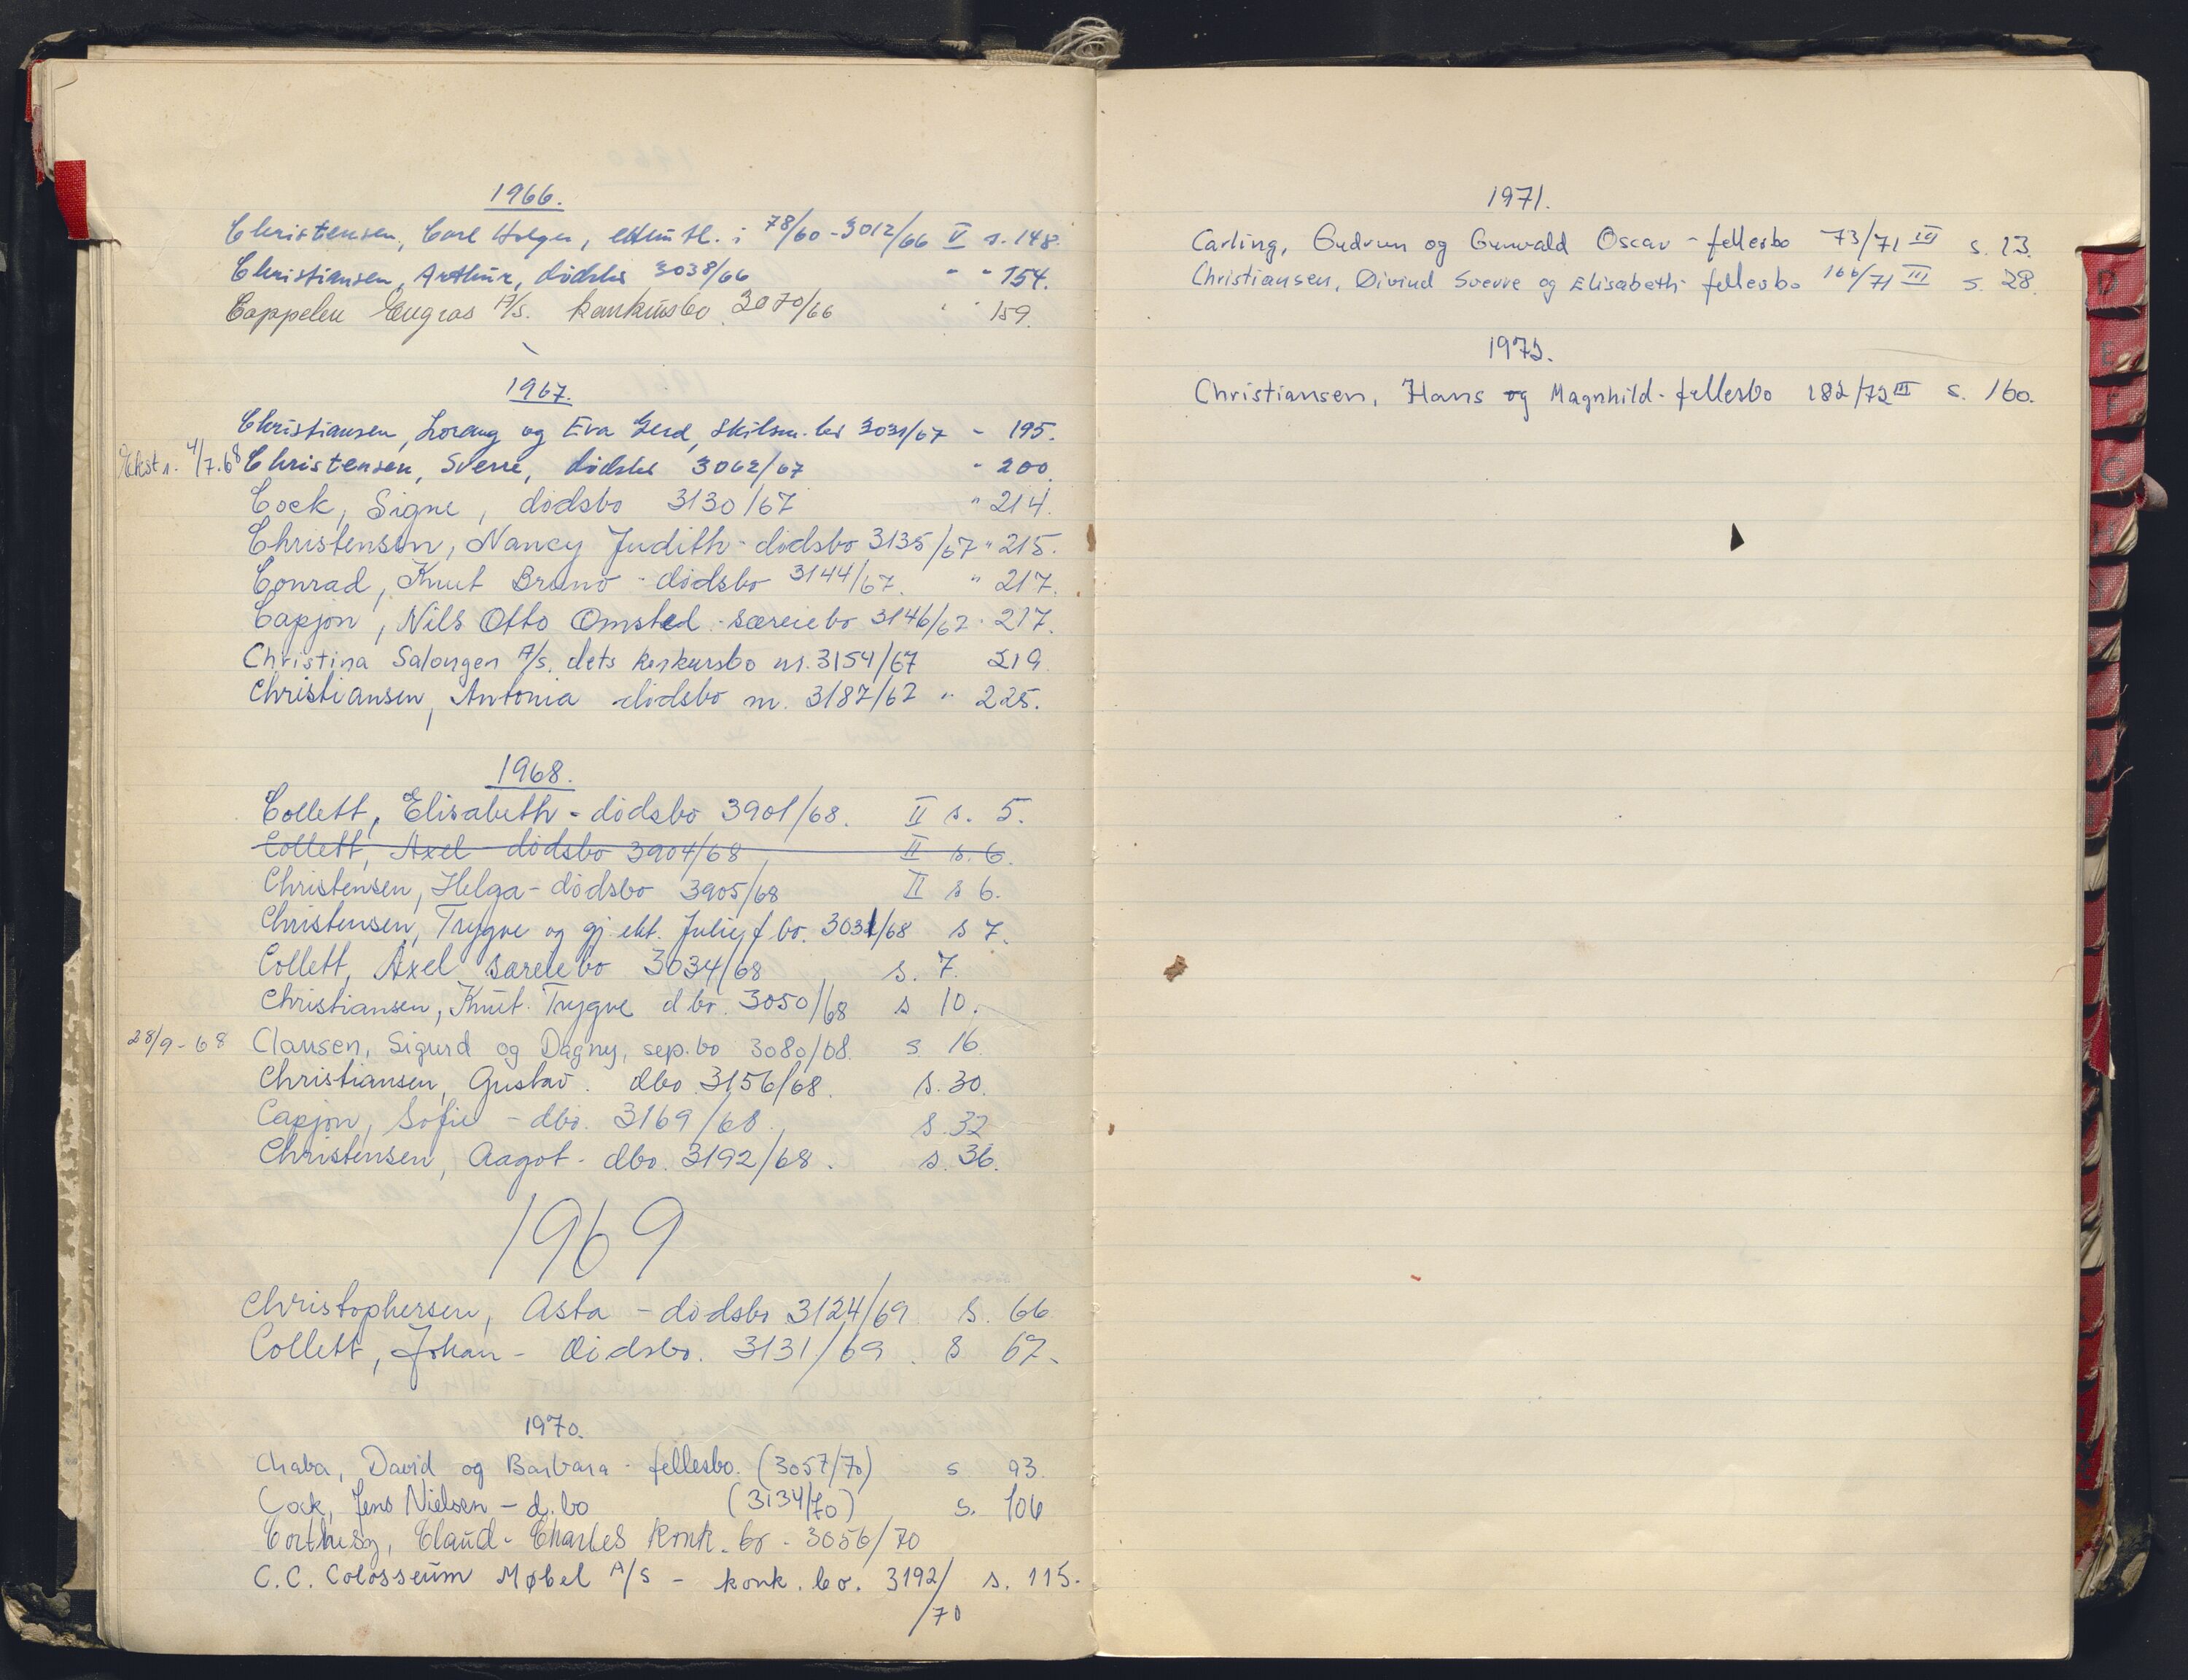 1966.
Christensen, Carl Holger, i 78/60 - 3012/66 V s. 148.
Christiansen, Arthur, dødsbo 3038/66 " " 154.
Cappelen Engros A/s. konkursbo 3070/66 " " 159.
1967.
Christiansen, Lorang og Eva Gerd, skilsm. bo 3031/67 - 195.
Ekstr. 4/7.68 Christensen, Sverre, dødsbo 3062/67 " 200.
Cock, Signe, dødsbo 3130/67 " 214.
Christensen, Nancy Judith - dødsbo 3135/67 " 215.
Conrad, Knut Bruno - dødsbo 3144/67. " 217.
Capjon, Nils Otto Omsted - særeiebo 3146/67 " 217.
Christina Salongen A/s. dets konkursbo nr. 3154/67 219.
Christiansen, Antonia dødsbo nr. 3187/67 " 225.
1968.
Collett, Elisabeth - dødsbo 3901/68. II s. 5.
Collett, Axel dødsbo 3904/68, II s. 6.
Christensen, Helga - dødsbo 3905/68 II s 6.
Christensen, Trygve og gj. ekt. Julie, f. bo. 3031/68 s 7.
Collett, Axel særeiebo 3034/68 s. 7.
Christiansen, Knut Trygve d bo. 3050/68 s 10.
28/9-68 Clausen, Sigurd og Dagny, sep.bo 3080/68. s 16.
Christiansen, Gustav. dbo. 3156/68. s. 30.
Capjon, Sofie - dbo. 3169/68. s. 32
Christensen, Aagot - dbo. 3192/68. s. 36.
1969
Christophersen, Asta - dødsbo 3124/69 s. 66
Collett, Johan - Dødsbo. 3131/69. s 67.
1970.
Chaba, David og Barbara - fellesbo. (3057/70) s 93.
Cock, Jens Nielsen - d. bo (3134/70) s. 106
Corthesy, Claud - Charles konk. bo - 3056/70
C.C. Colosseum Møbel A/S - konk. bo. 3192/ s. 115.
/70
1971.
Carling, Gudrun og Gunvald Oscar - fellesbo 73/71 III s. 13.
Christiansen, Øivind Sverre og Elisabeth - fellesbo 166/71 III s. 28.
1972.
Christiansen, Hans og Magnhild - fellesbo 182/72 III s. 160.
D
E
F
G